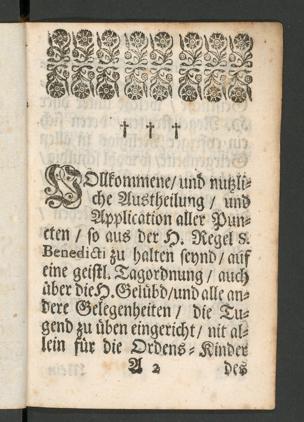 † † †
VOllkommene/ und nutzli-
che Austheilung / und
Application aller Pun-
cten / so aus der H. Regel S.
Benedicti zu halten seynd / auf
eine geistl. Tagordnung / auch
über die H. Gelübd/und alle an-
dere Gelegenheiten / die Tu-
gend zu üben eingericht/ nit al-
lein für die Ordens-Kinder
A 2 des